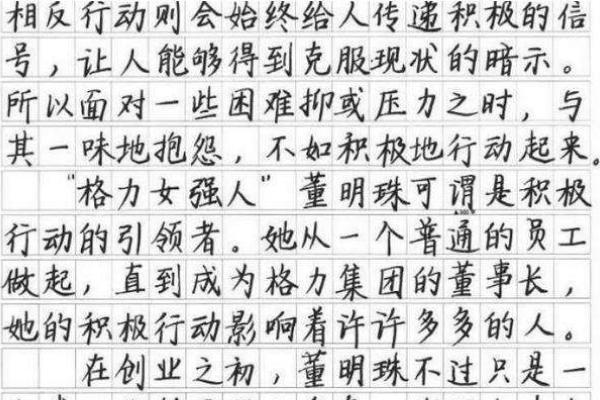 相反行动则会始终给人传递积极的信
号，让人能够得到克服现状的暗示。
所以面对一些困难抑或压力之时，与
其一味地抱怨，不如积极地行动起来。
“格力女强人”董明珠可谓是积极
行动的引领者。她从一个普通的员工
做起，直到成为格力集团的董事长，
她的积极行动影响着许许多多的人。
在创业之初，董明珠不过只是一